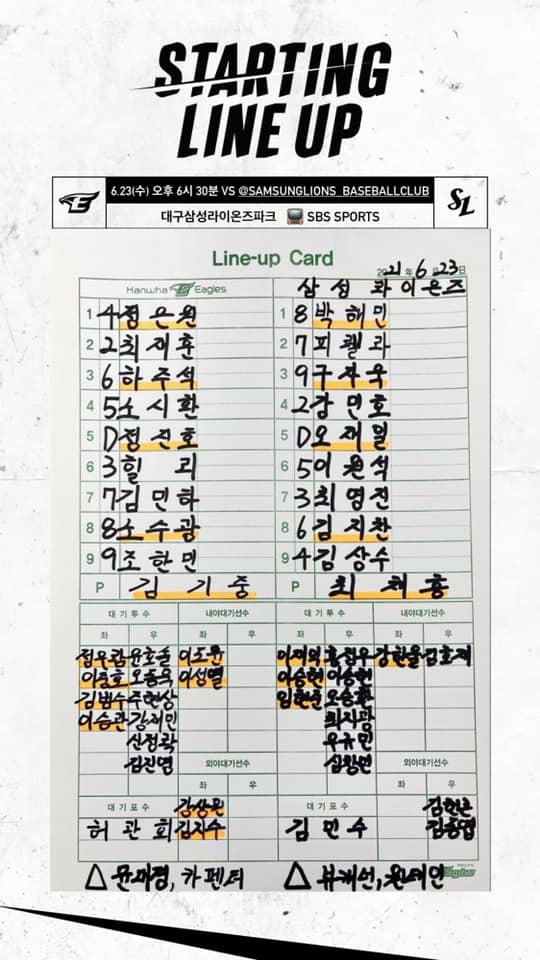 STARTING
LINE UP
6.23(수) 오후 6시 30분 VS @SAMSUNGLIONS_BASEBALLCLUB
대구삼성라이온즈파크 SBS SPORTS
Line-up Card
2021년 6월 23일
Hanwha Eagles 삼성 라이온즈
1 4 정은원 1 8 박해민
2 2 최재훈 2 7 피렐라
3 6 하주석 3 9 구자욱
4 5 노시환 4 2 강민호
5 D 정진호 5 D 오재일
6 3 힐리 6 5 이원석
7 7 김민하 7 3 최영진
8 8 노수광 8 6 김지찬
9 9 조한민 9 4 김상수
P 김기중 P 최채흥
대기투수 내야대기선수 대기투수 내야대기선수
좌 우 좌 우 좌 우 좌 우
정우람 윤호솔 이도윤 이재익 홍정우 강한울 김호재
이충호 오동욱 이성열 이승현 이승현
김범수 주현상 임현준 오승환
이승관 강재민 최지광
신정락 우규민
김진영 외야대기선수 심창민 외야대기선수
좌 우 좌 우
대기포수 강상원 대기포수 김헌곤
허관회 김지수 김민수
△ 윤대경, 카펜터 △ 뷰캐넌, 원태인
Eagles